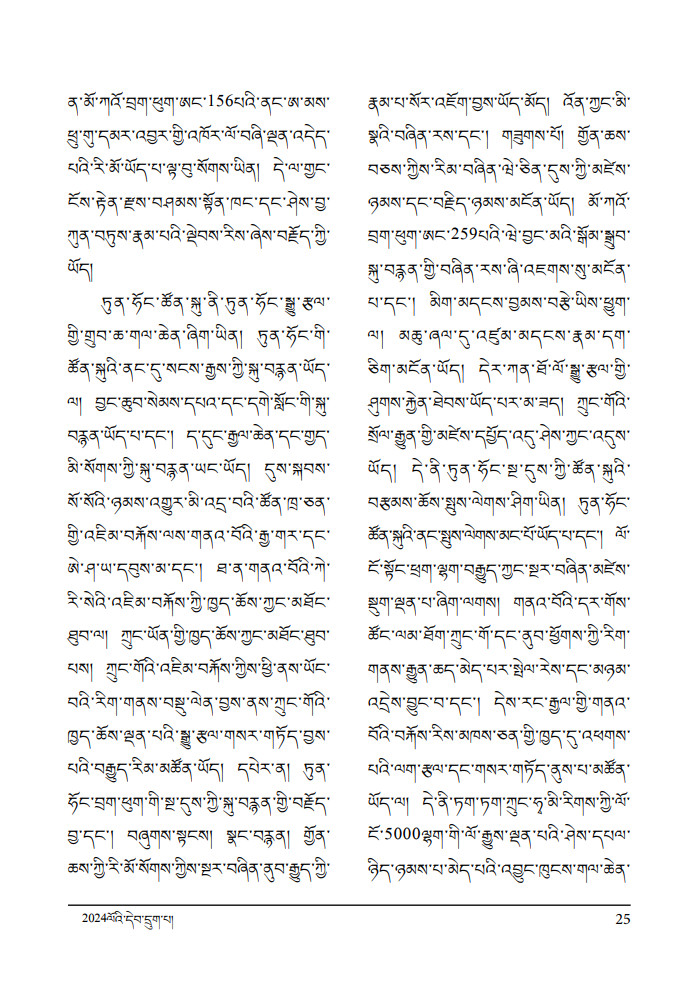 ན་མོ་ཀའོ་བྲག་ཕུག་ཨང་156པའི་ནང་ཨ་མས་
ཕྲུ་གུ་དམར་འབྱར་གྱི་འཁོར་ལོ་བཞི་ལྡན་འདེད་
པའི་རི་མོ་ཡོད་པ་ལྟ་བུ་སོགས་ཡིན། དེ་ལ་གྱང་
ངོས་རྟེན་རྫས་བཤམས་སྟོན་ཁང་དང་ཤེས་བྱ་
ཀུན་བཏུས་རྣམ་པའི་ལྡེབས་རིས་ཞེས་བརྗོད་ཀྱི་
ཡོད།
ཏུན་ཧོང་ཚོན་སྐུ་ནི་ཏུན་ཧོང་སྒྱུ་རྩལ་
གྱི་གྲུབ་ཆ་གལ་ཆེན་ཞིག་ཡིན། ཏུན་ཧོང་གི་
ཚོན་སྐུའི་ནང་དུ་སངས་རྒྱས་ཀྱི་སྐུ་བརྙན་ཡོད་
ལ། བྱང་ཆུབ་སེམས་དཔའ་དང་དགེ་སློང་གི་སྐུ་
བརྙན་ཡོད་པ་དང་། ད་དུང་རྒྱལ་ཆེན་དང་གྱད་
མི་སོགས་ཀྱི་སྐུ་བརྙན་ཡང་ཡོད། དུས་སྐབས་
སོ་སོའི་ཉམས་འགྱུར་མི་འདྲ་བའི་ཚོན་ཁྲ་ཅན་
གྱི་འཇིམ་བརྐོས་ལས་གནའ་བོའི་རྒྱ་གར་དང་
ཨེ་ཤ་ཡ་དབུས་མ་དང་། ཐ་ན་གནའ་བོའི་ཀེ་
རི་སེའི་འཇིམ་བརྐོས་ཀྱི་ཁྱད་ཆོས་ཀྱང་མཐོང་
ཐུབ་ལ། ཀྲུང་ཡོན་གྱི་ཁྱད་ཆོས་ཀྱང་མཐོང་ཐུབ་
པས། ཀྲུང་གོའི་འཇིམ་བརྐོས་ཀྱིས་ཕྱི་ནས་ཡོང་
བའི་རིག་གནས་བསྡུ་ལེན་བྱས་ནས་ཀྲུང་གོའི་
ཁྱད་ཆོས་ལྡན་པའི་སྒྱུ་རྩལ་གསར་གཏོད་བྱས་
པའི་བརྒྱུད་རིམ་མཚོན་ཡོད། དཔེར་ན། ཏུན་
ཧོང་བྲག་ཕུག་གི་སྔ་དུས་ཀྱི་སྐུ་བརྙན་གྱི་བརྗོད་
བྱ་དང་། བཞུགས་སྟངས། སྣང་བརྙན། གྱོན་
ཆས་ཀྱི་རི་མོ་སོགས་ཀྱིས་སྔར་བཞིན་ནུབ་རྒྱུད་ཀྱི་
རྣམ་པ་སོར་འཇོག་བྱས་ཡོད་མོད། འོན་ཀྱང་མི་
སྣའི་བཞིན་རས་དང་། གཟུགས་པོ། གྱོན་ཆས་
བཅས་ཀྱིས་རིམ་བཞིན་ཝེ་ཅིན་དུས་ཀྱི་མཛེས་
ཉམས་དང་བརྗིད་ཉམས་མངོན་ཡོད། མོ་ཀའོ་
བྲག་ཕུག་ཨང་259པའི་ཝེ་བྱང་མའི་སྒོམ་སྒྲུབ་
སྐུ་བརྙན་གྱི་བཞིན་རས་ཞི་འཇགས་སུ་མངོན་
པ་དང་། མིག་མདངས་བྱམས་བརྩེ་ཡིས་ཕྱུག་
ལ། མཆུ་ཞལ་དུ་འཛུམ་མདངས་རྣམ་དག་
ཅིག་མངོན་ཡོད། དེར་ཀན་ཐོ་ལོ་སྒྱུ་རྩལ་གྱི་
ཤུགས་རྐྱེན་ཐེབས་ཡོད་པར་མ་ཟད། ཀྲུང་གོའི་
སྲོལ་རྒྱུན་གྱི་མཛེས་དཔྱོད་འདུ་ཤེས་ཀྱང་འདུས་
ཡོད། དེ་ནི་ཏུན་ཧོང་སྔ་དུས་ཀྱི་ཚོན་སྐུའི་
བརྩམས་ཆོས་སྤུས་ལེགས་ཤིག་ཡིན། ཏུན་ཧོང་
ཚོན་སྐུའི་ནང་སྤུས་ལེགས་མང་པོ་ཡོད་པ་དང་། ལོ་
ངོ་སྟོང་ཕྲག་ལྷག་བརྒྱུད་ཀྱང་སྔར་བཞིན་མཛེས་
སྡུག་ལྡན་པ་ཞིག་ལགས། གནའ་བོའི་དར་གོས་
ཚོང་ལམ་ཐོག་ཀྲུང་གོ་དང་ནུབ་ཕྱོགས་ཀྱི་རིག་
གནས་རྒྱུན་ཆད་མེད་པར་སྤེལ་རེས་དང་མཉམ་
འདྲེས་བྱུང་བ་དང་། དེས་རང་རྒྱལ་གྱི་གནའ་
བོའི་བརྐོས་རིས་མཁས་ཅན་གྱི་ཁྱད་དུ་འཕགས་
པའི་ལག་རྩལ་དང་གསར་གཏོད་ནུས་པ་མཚོན་
ཡོད་ལ། དེ་ནི་ཏག་ཏག་ཀྲུང་ཧྭ་མི་རིགས་ཀྱི་ལོ་
ངོ་5000ལྷག་གི་ལོ་རྒྱུས་ལྡན་པའི་ཤེས་དཔལ་
ཉིད་ཉམས་པ་མེད་པའི་འབྱུང་ཁུངས་གལ་ཆེན་
2024ལོའི་དེབ་དྲུག་པ། 25